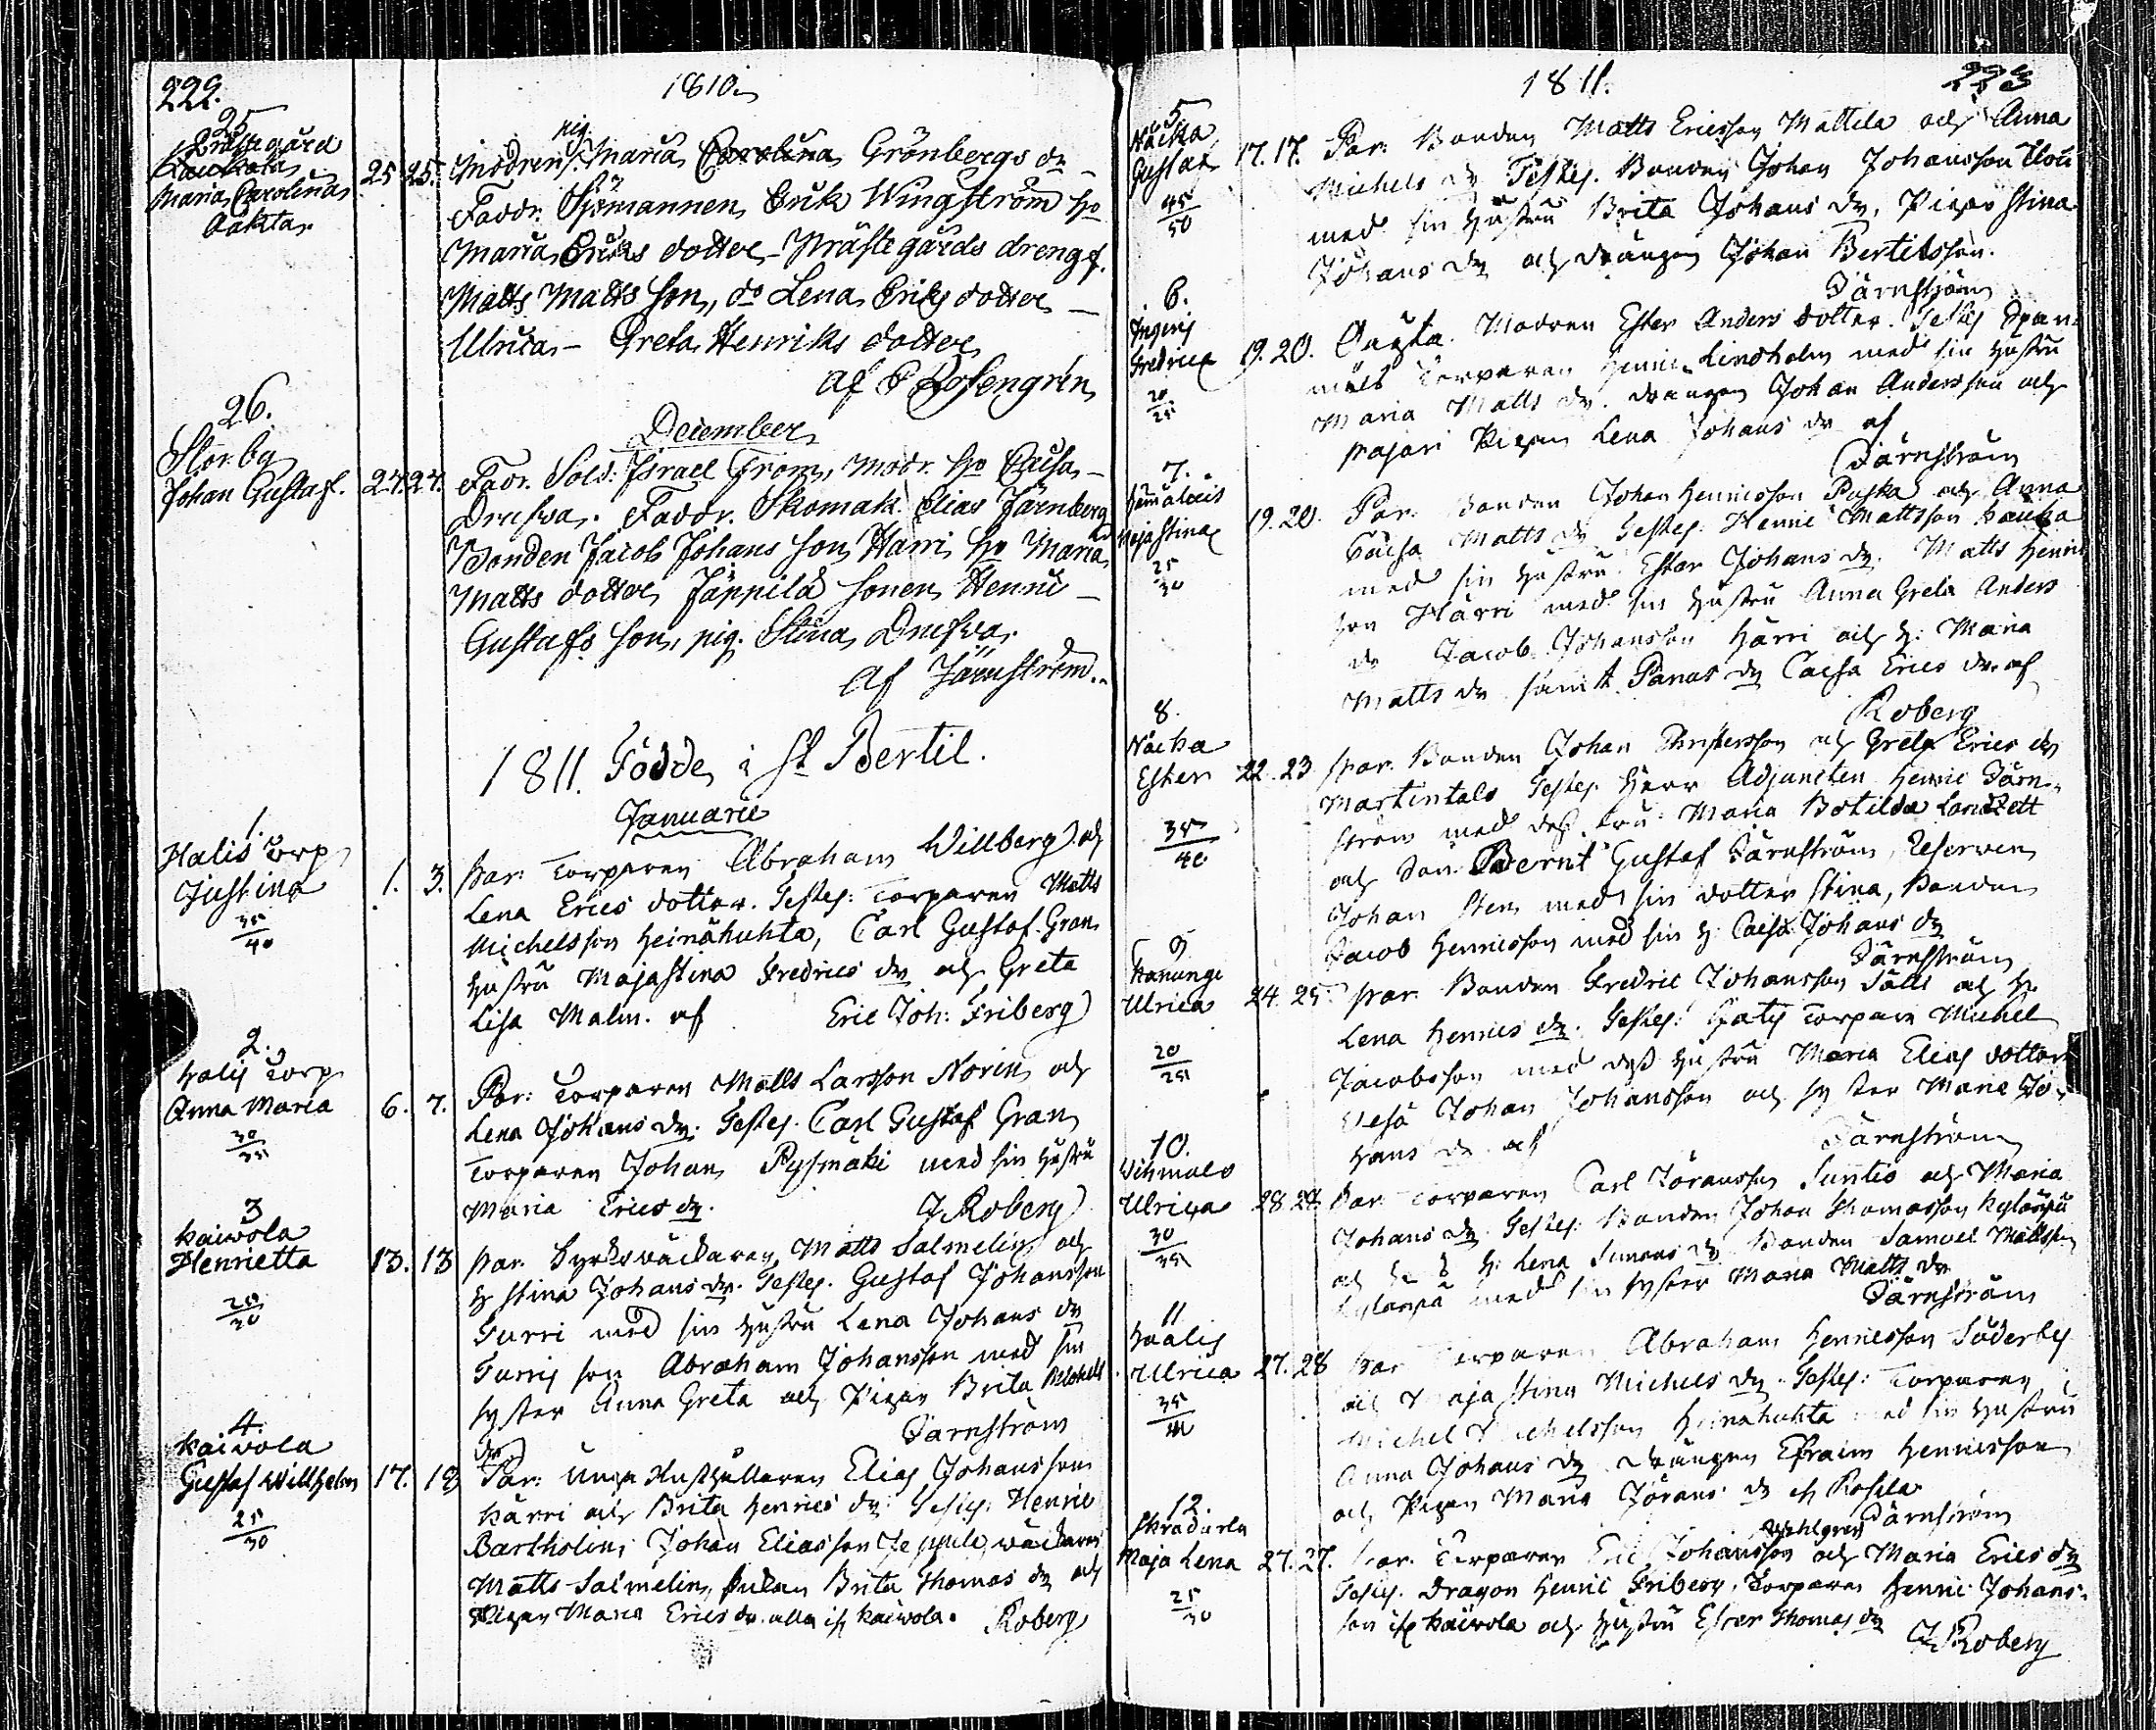 222.
1810.
25
Prästegård
Maria Carolina
Oäkta.
25 25. Modren pig. Maria Carolina Grönbergs dr
Faddr. Sjömannen Erik Wingström ho
Maria Eriks dotter - Prästegårds dreng
Matts Matts son, do Lena Eriks dotter
Ulrica - Greta Henriks dotter
af E Rosengrén
December
26.
Storby
Johan Gustaf. 24. 24. Fadr. Sold. Israel From, modr. ho Caisa
Drufva. Faddr. Skomak. Elias Järnberg
Bonden Jacob Johans son Harri ho Maria
Matts dotter Jäppilä sonen Henric
Gustafs son, pig. Stina Drufva.
af Järnström.
1811. Födde i St Bertil.
Januarii
1.
Halis torp
Justina
35/40
1. 3. Par: Torparen Abraham Willberg och
Lena Erics dotter. Testes: Torparen Matts
Michelsson Heinähuhta, Carl Gustaf Gran
Hustru Majastina Fredrics dr och Greta
Lisa Malm. af Eric Joh: Friberg
2.
Halis Torp
Anna Maria
30/35
6. 7. Par: Torparen Matts Larsson Norin och
Lena Johans dr. Testes. Carl Gustaf Gran
Torparen Johan Pysmäki med sin Hustru
Maria Erics dr. J Roberg
3
Kaivola
Henrietta
20/30
13. 13 Par. Matts Salmelin och
H Stina Johans dr. Testes. Gustaf Johansson
Turri med sin Hustru Lena Johans dr
Turris son Abraham Johansson med sin
syster Anna Greta och Pigan Brita Michels
dr. Järnström
4.
Kaivola
Gustaf Willhelm
25/30
17. 18 Par: Unga Hushållaren Elias Johansson
Härri och Brita Henrics dr. Testes: Henric
Bartholin, Johan Eliasson Jeppila,
Matts Salmelin, Brita Thomas dr och
Pigan Maria Erics dr. alla if. Kaivola. Roberg
1811.
223
5
Näcka
Gustaf
45/50
17. 17. Par: Bonden Matts Ericsson Mattila och Anna
Michels dr Testes. Bonden Johan Johansson
med sin Hustru Brita Johans dr, Pigan Stina
Johans dr och drängen Johan Bertilsson.
Järnström
6.
Ingeris
Fredrica
20/25
19. 20. Oägta. Modren Ester Anders dotter. Testes
Torparen Henric Lindholm med sin Hustru
Maria Matts dr. drängen Johan Andersson och
Pigan Lena Johans dr af
Järnström
7.
Majastina
25/30
19. 20. Par: Bonden Johan Henricsson Puska och Anna
Caisa Matts dr Testes: Henric Mattsson
med sin Hustru Ester Johans dr. Matts Henrics
son Härri med sin Hustru Anna Greta Anders
dr Jacob Johansson Härri och H: Maria
Matts dr samt dr Caisa Erics dr. af
Roberg
8.
Näcka
Ester
35/40
22. 23 Par. Bonden Johan Christersson och Greta Erics dr
Martintalo Testes. Herr Adjuncten Henric Järn-
ström med dess fru: Maria Botilda Landzett
och Son Bernt Gustaf Järnström,
Johan Sten med sin dotter Stina, Bonden
Jacob Henricsson med sin H: Caisa Johans dr
Järnström
9
Hanunge
Ulrica
20/25
24. 25. Par. Bonden Fredric Johansson Sälli och H.
Lena Henrics dr. Testes: Torparen Michel
Jacobsson med dess Hustru Maria Elias dotter
Johan Johansson och syster Maria Jo-
hans dr. af Järnström
10.
Ulrica
30/35
28. 28. Par. Torparen Carl Göransson Suntio och Maria
Johans dr. Testes. Bonden Johan Thomasson Kyläänpä
och H: Lena Simons dr Bonden Samuel Mattsson
med sin syster Maria Matts dr
Järnström
11
Haalis
Ulrica
35/40
27. 28 Par Torparen Abraham Henricsson Söderby
och Majastina Michels dr. Testes: Torparen
Michel Michelsson Heinähuhta med sin Hustru
Anna Johans dr drängen Efraim Henricsson
och Pigan Maria Görans dr
Järnström
12.
Skradarla
Maja Lena
25/30
27. 27. Par. Torparen Eric Johansson Wahlgren och Maria Erics dr
Testes. Dragon Henric Friberg, Torparen Henric Johans-
son if. Kaivola och Hustru Ester Thomas dr
J Roberg